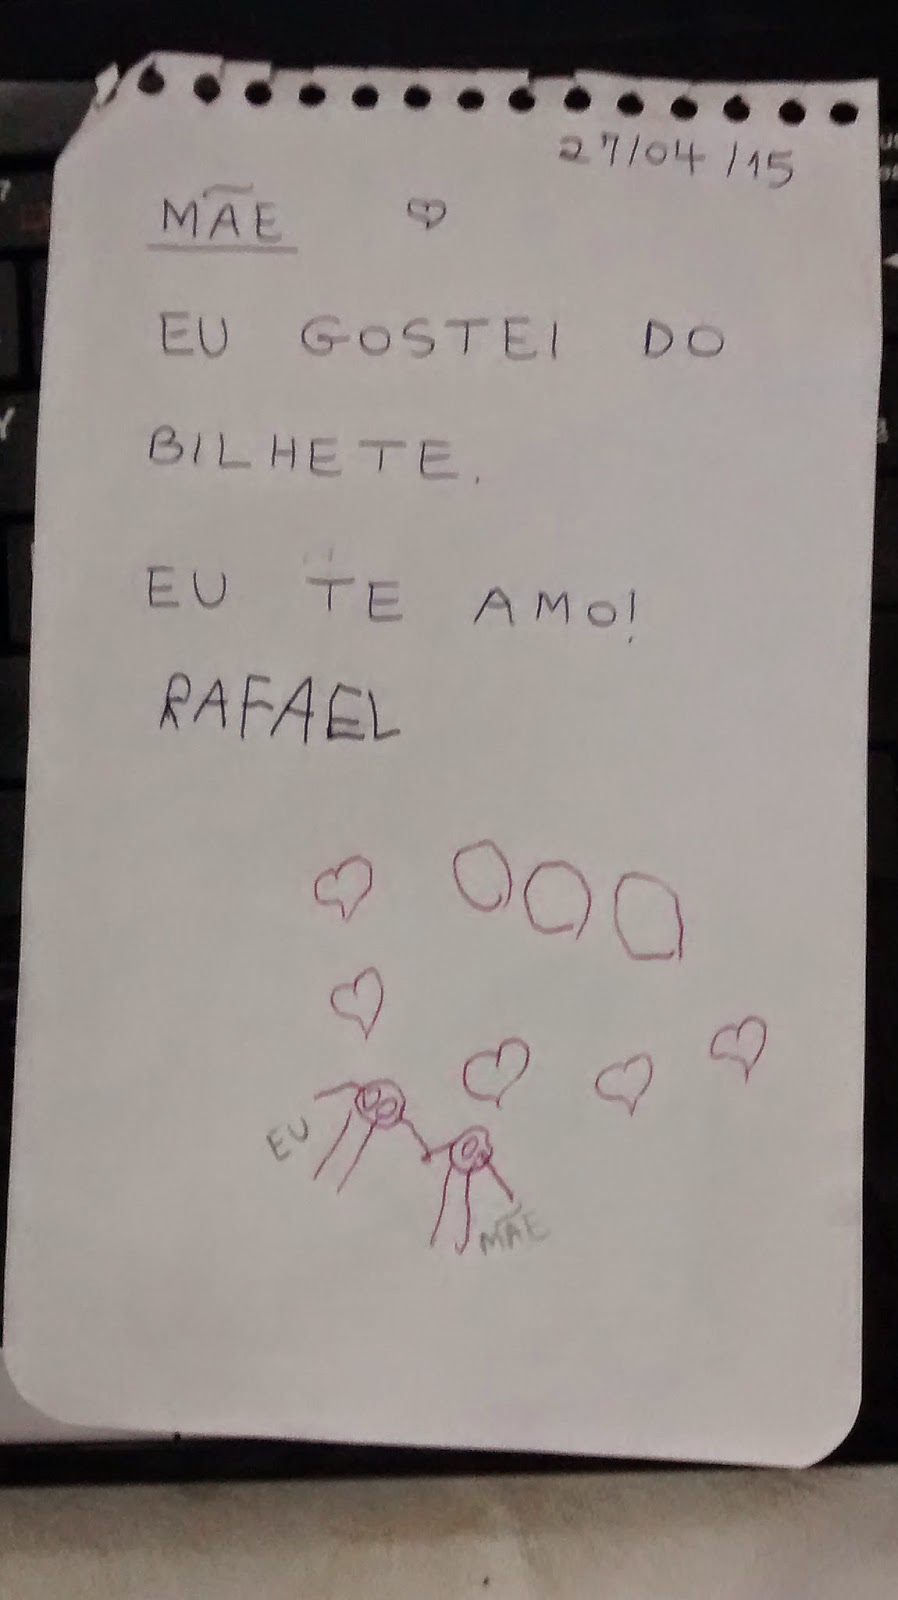 27/04/15
MÃE
EU GOSTEI DO
BILHETE.
EU TE AMO!
RAFAEL
EU
MÃE